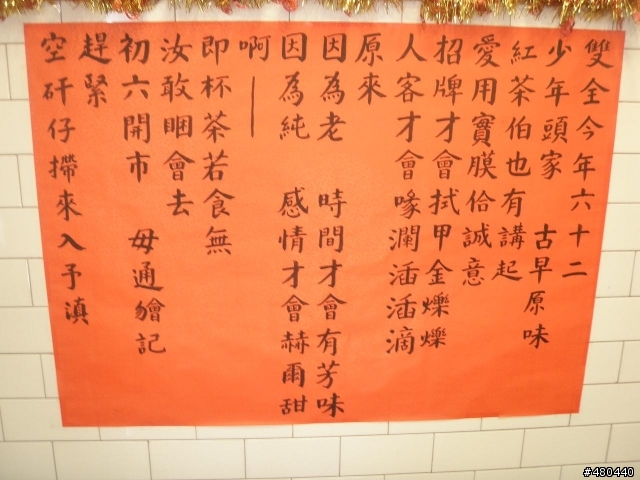 雙全今年六十二
少年頭家 古早原味
紅茶伯也有講起
愛用實膜佮誠意
招牌才會拭甲金爍爍
人客才會喙瀾涵涵滴
原來
因為老 時間才會有芳味
因為純 感情才會赫爾甜
啊——
即杯茶若食無
汝敢睏會去
初六開市 毋通獪記
趕緊
空矸仔攢來入予滇
#480440